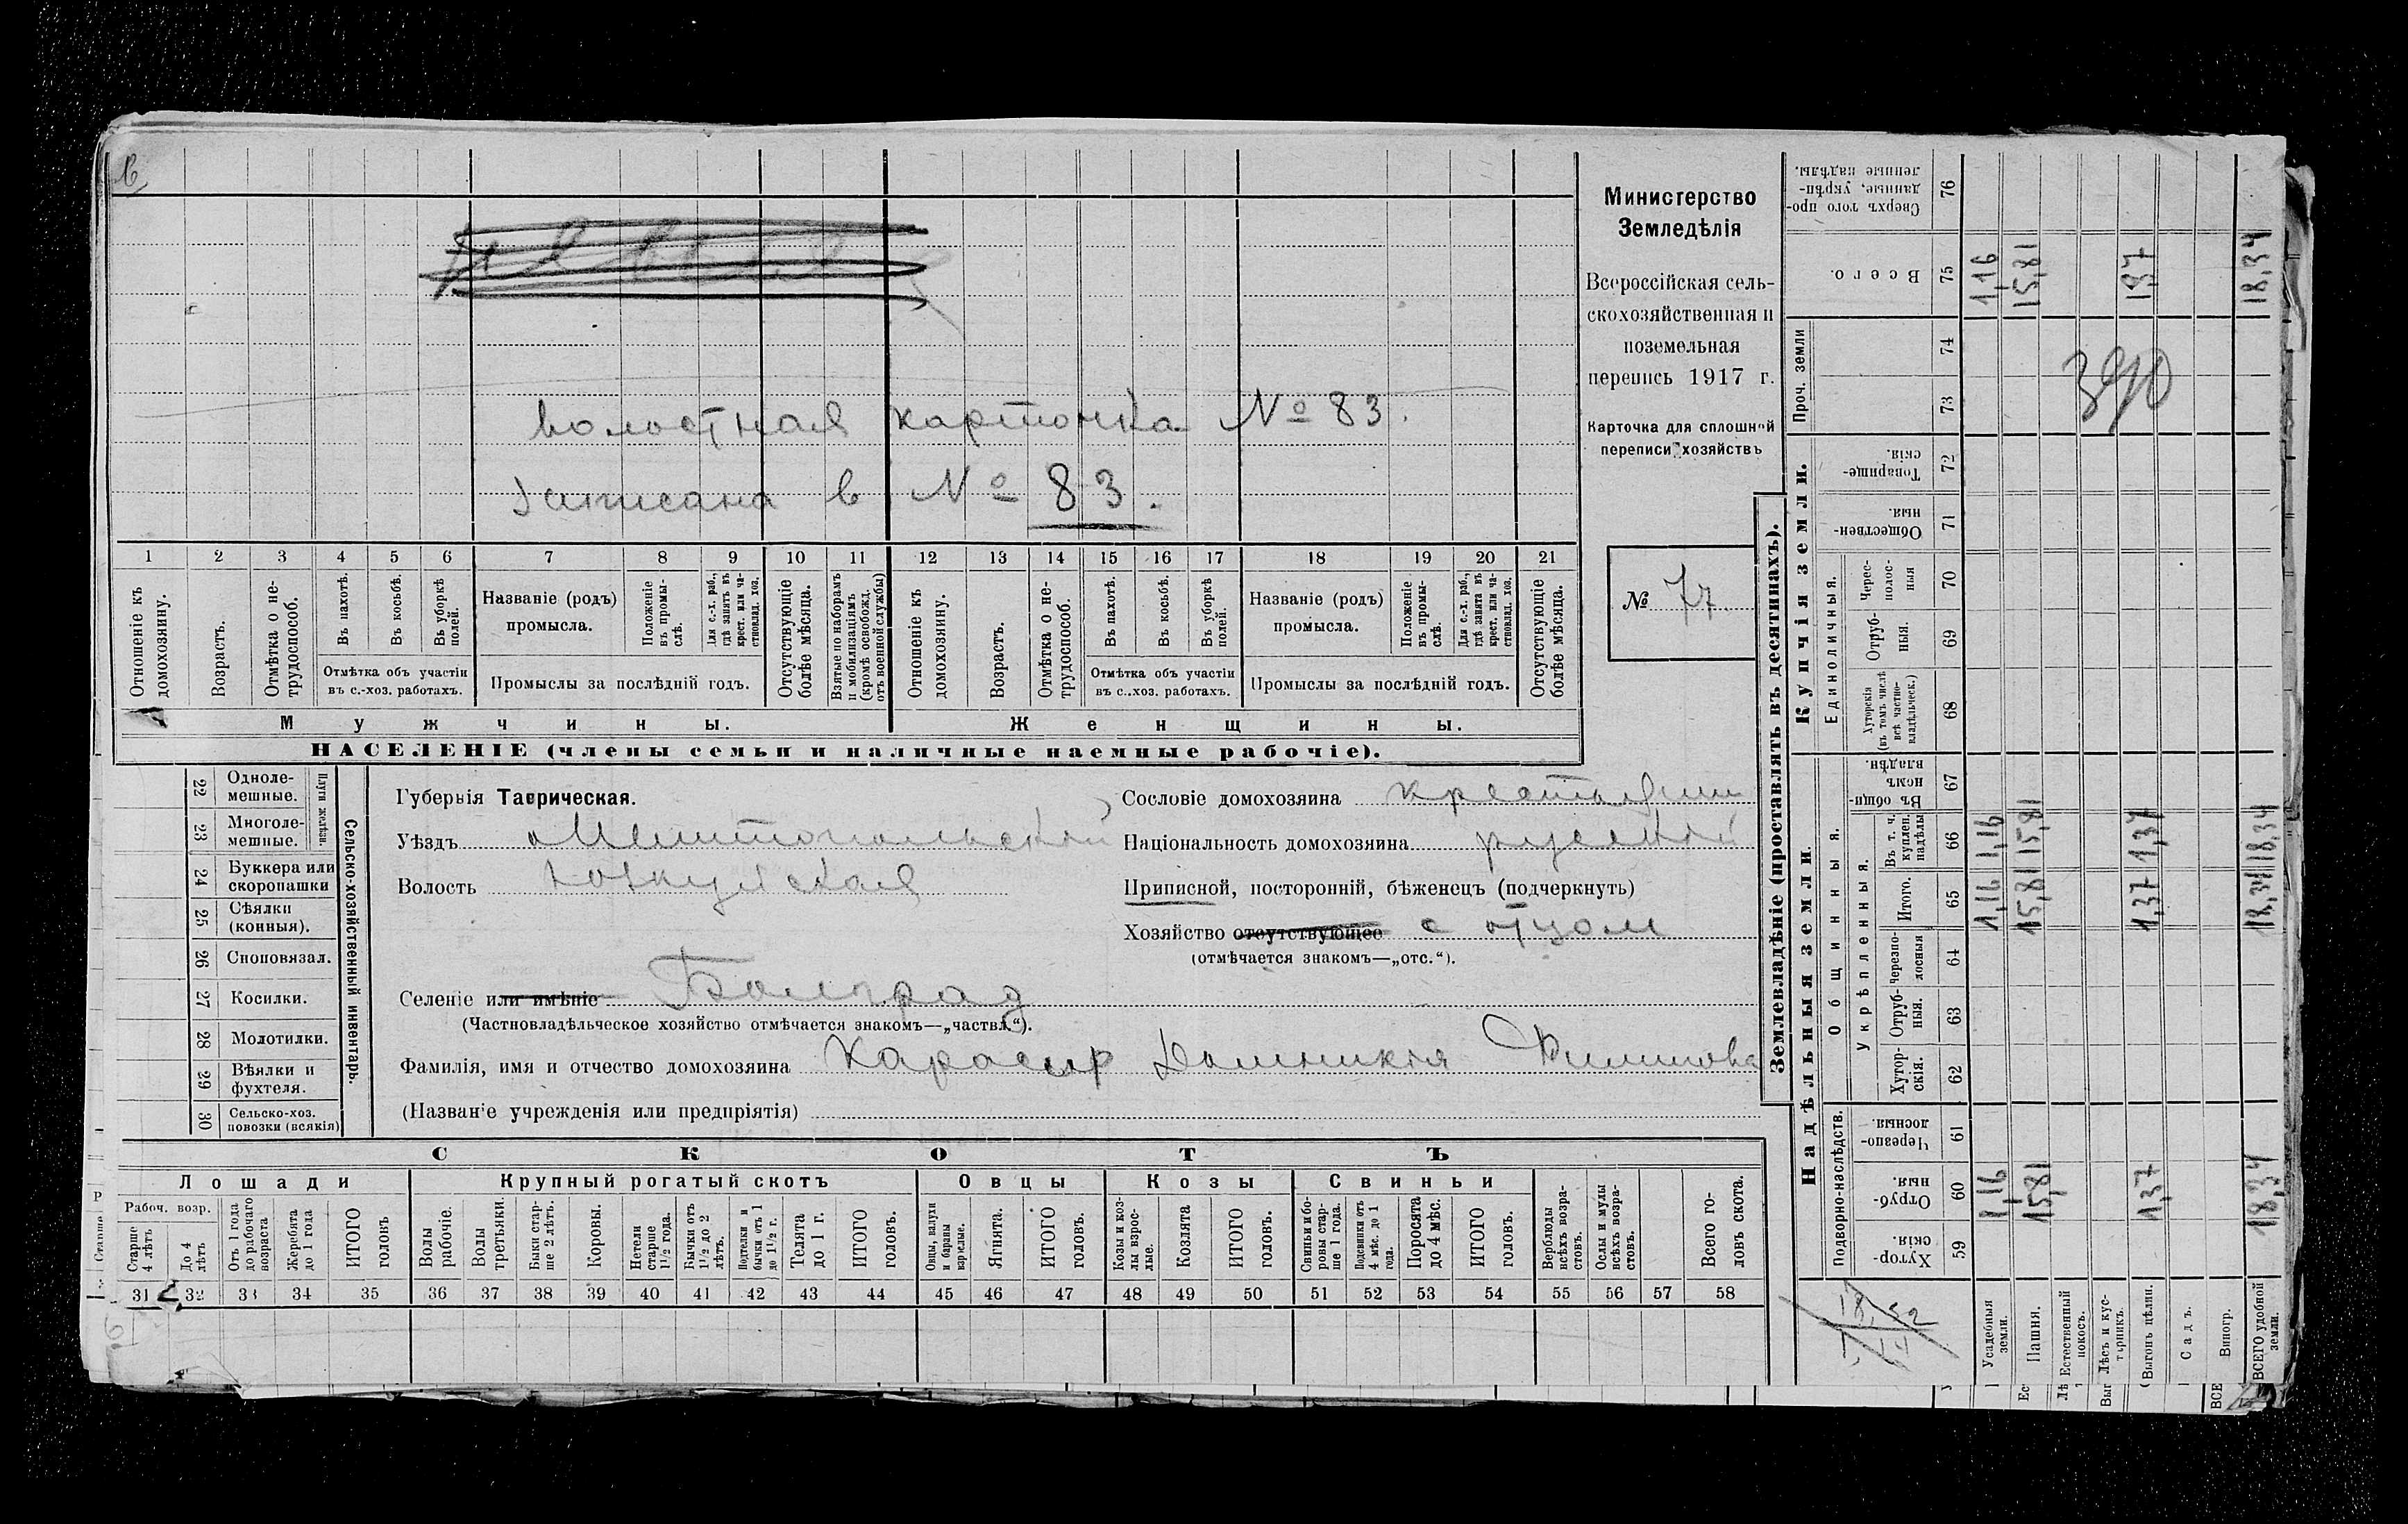 в
волостная карточка № 83.
записана в № 83.
1 2 3 4 5 6 7 8 9 10 11 12 13 14 15 16 17 18 19 20 21
Отношеніе къ домохозяину.
Возрастъ.
Отмѣтка о не-трудоспособ.
Въ пахотѣ.
Въ косьбѣ.
Въ уборкѣ полей.
Отмѣтка объ участіи въ с.-хоз. работахъ.
Названіе (родъ) промысла.
Положеніе въ промы-слѣ.
Для с.-х. раб., гдѣ занятъ въ крест. или ча-стновлад. хоз.
Промыслы за послѣдній годъ.
Отсутствующіе болѣе мѣсяца.
Взятые по наборамъ и мобилизаціямъ (кромѣ освобожд. отъ военной службы)
Отношеніе къ домохозяину.
Возрастъ.
Отмѣтка о не-трудоспособ.
Въ пахотѣ.
Въ косьбѣ.
Въ уборкѣ полей.
Отмѣтка объ участіи въ с.-хоз. работахъ.
Названіе (родъ) промысла.
Положеніе въ промы-слѣ.
Для с.-х. раб., гдѣ занята въ крест. или ча-стновлад. хоз.
Промыслы за послѣдній годъ.
Отсутствующіе болѣе мѣсяца.
Мужчины.
Женщины.
НАСЕЛЕНІЕ (члены семьи и наличные наемные рабочіе).
Министерство
Земледѣлія
Всероссійская сель-
скохозяйственная и
поземельная
перепись 1917 г.
Карточка для сплошной
переписи хозяйствъ
№ 77.
22 Одноле-мешные.
23 Многоле-мешные.
Плуги желѣзн.
24 Буккера или скоропашки
25 Сѣялки (конныя).
26 Сноповязал.
27 Косилки.
28 Молотилки.
29 Вѣялки и фухтеля.
30 Сельско-хоз. повозки (всякія)
Сельско-хозяйственный инвентарь.
Губернія Таврическая.
Уѣздъ Мелитопольскій
Волость
Сословіе домохозяина крестьянин
Національность домохозяина русскій
Приписной, посторонній, бѣженецъ (подчеркнуть)
Хозяйство отсутствующее с отцом
(отмѣчается знакомъ—„отс.“).
Селеніе или имѣніе Болград
(Частновладѣльческое хозяйство отмѣчается знакомъ—„частвл.“).
Фамилія, имя и отчество домохозяина Карасыр Домникія
(Названіе учрежденія или предпріятія)
СКОТЪ
Лошади
Крупный рогатый скотъ
Овцы
Козы
Свиньи
Рабоч. возр.
Старше 4 лѣтъ
До 4 лѣтъ
Отъ 1 года до рабочаго возраста
Жеребята до 1 года
ИТОГО головъ
Волы рабочіе.
Волы третьяки.
Быки стар-ше 2 лѣтъ.
Коровы.
Нетели старше 1½ года.
Бычки отъ 1½ до 2 лѣтъ.
Подтелки и бычки отъ 1 до 1½ г.
Телята до 1 г.
ИТОГО головъ.
Овцы, валухи и бараны взрослые.
Ягнята.
ИТОГО головъ.
Козы и коз-лы взрос-лые.
Козлята
ИТОГО головъ.
Свиньи и бо-ровы стар-ше 1 года.
Подсвинки отъ 4 мѣс. до 1 года.
Поросята до 4 мѣс.
ИТОГО головъ.
Верблюды всѣхъ возра-стовъ.
Ослы и мулы всѣхъ возра-стовъ.
Всего го-ловъ скота.
31 32 33 34 35 36 37 38 39 40 41 42 43 44 45 46 47 48 49 50 51 52 53 54 55 56 57 58
Землевладѣніе (проставлять въ десятинахъ).
Купчія земли.
Проч. земли
Надѣльныя земли.
Сверхъ того про-данные, укрѣп-ленные надѣлы. 76
Всего. 75 1,16 15,81 1,37 18,34
74
73
390
Товарище-скія. 72
Обществен-ныя. 71
Единоличныя.
Черес-полос-ныя 70
Отруб-ныя. 69
Хуторскія (въ томъ числѣ всѣ частно-владѣльческ.) 68
Общинныя.
Въ общин-номъ владѣн. 67
Укрѣпленныя.
Въ т. ч. куплен. надѣлы 66 1,16 15,81 1,37 18,34
Итого. 65 1,16 15,81 1,37 18,34
Черезпо-лосныя 64
Отруб-ныя. 63
Хутор-скія. 62
Подворно-наслѣдств.
Черезпо-лосныя. 61
Отруб-ныя. 60 1,16 15,81 1,37 18,34
Хутор-скія. 59
Усадебныя земли.
Пашня.
Естественный покосъ.
Лѣсъ и кус-тарникъ.
Выгонъ цѣлин.
Садъ.
Виногр.
ВСЕГО удобной земли.